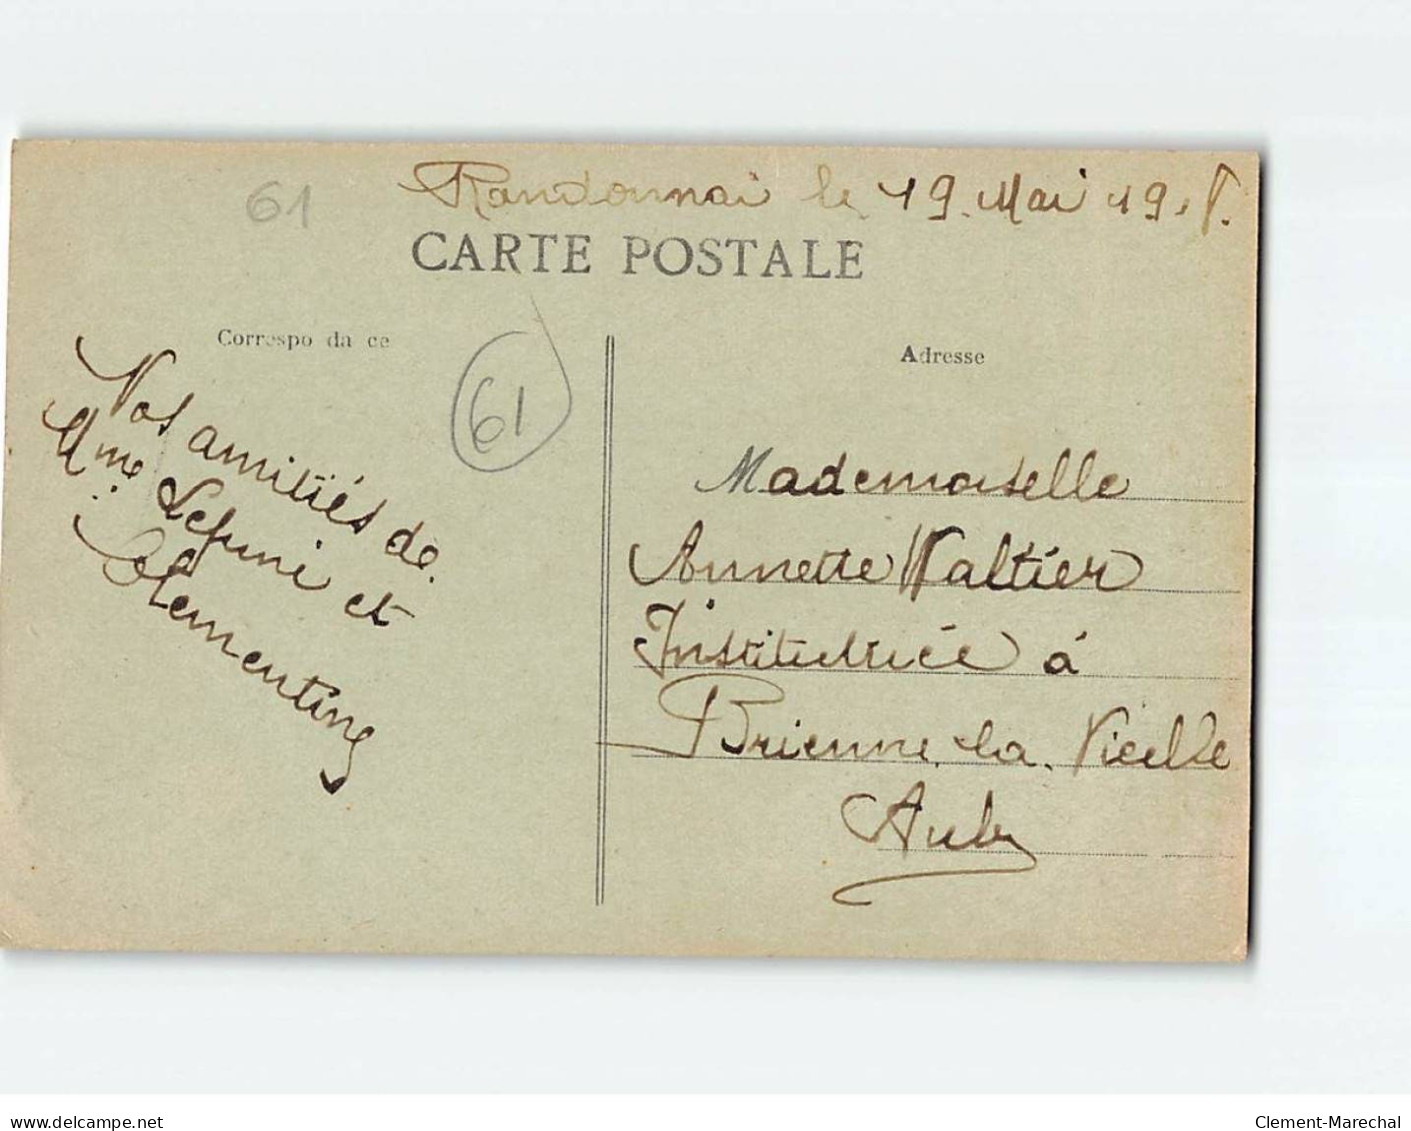 Randonnai le 19 Mai 19
61
CARTE POSTALE
Correspo da ce
Adresse
61
Nos amitiés de
Mme Lefuni et
Clementine
Mademoiselle
Annette Waltier
Institutrice á
Brienne la Vieille
Aube
www.delcampe.net
Clement-Marechal